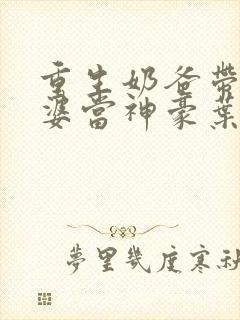 重生奶爸帶
婆當神豪葉
夢里幾度寒秋